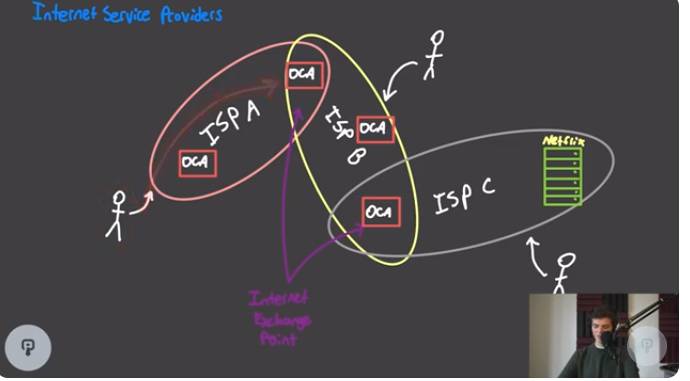 Internet Service Providers
OCA
ISP A
OCA
ISP
B
OCA
Netflix
OCA
ISP C
Internet
Exchange
Point